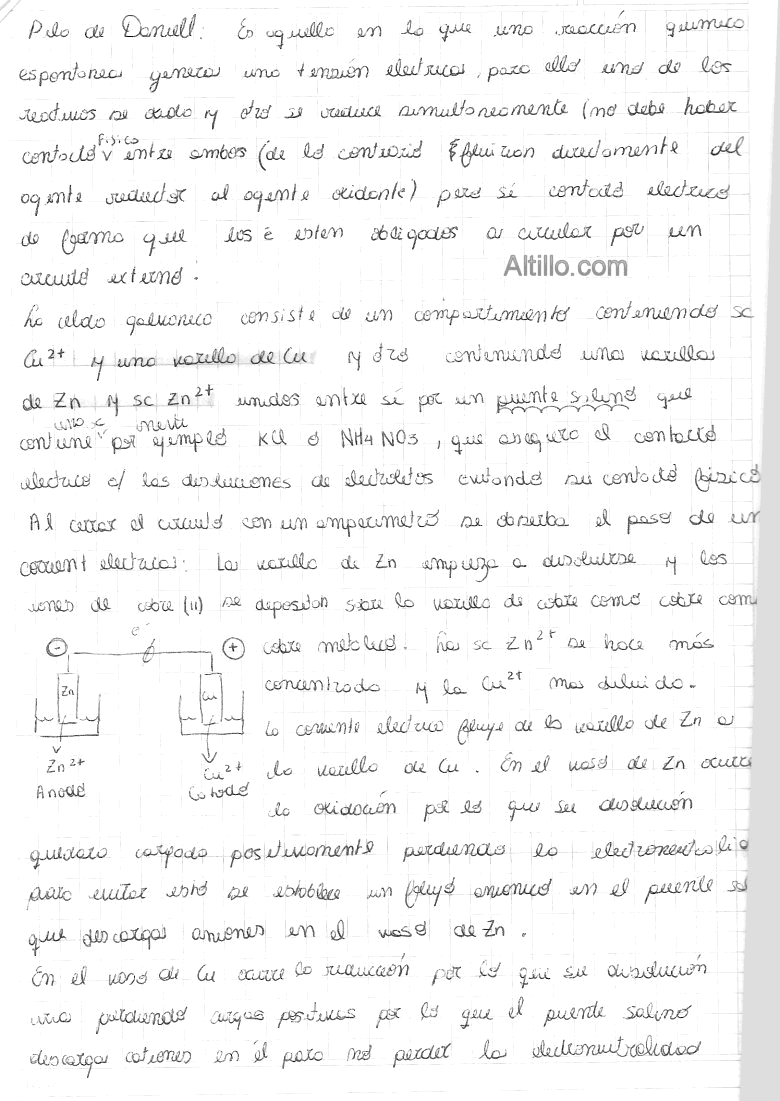 Pila de Daniell: Es aquella en la que una reacción química
espontanea genera una tensión electrica, para ello uno de los
reactivos se oxida y otro se reduce simultaneamente (no debe haber
fisico
contacto v entre ambos (de lo contrario e⁻ fluirian directamente del
agente reductor al agente oxidante) pero sí contacto electrico
de forma que los e⁻ esten obligados a circular por un
circuito externo.
Altillo.com
La celda galvanica consiste de un compartimiento conteniendo sc
Cu²⁺ y una varilla de Cu y otro conteniendo una varilla
de Zn y sc Zn²⁺ unidos entre sí por un puente salino que
una sc inerte
contiene v por ejemplo KCl o NH4NO3, que asegura el contacto
electrico e/ las disoluciones de electrolitos evitando su contacto fisico
Al cerrar el circuito con un amperimetro se observa el paso de un
corrient electrica: La varilla de Zn empieza a disolverse y los
iones de cobre (II) se depositan sobre la varilla de cobre como cobre com
cobre metalico. La sc Zn²⁺ se hace más
concentrada y la Cu²⁺ mas diluida.
La corriente electrica fluye de la varilla de Zn a
la varilla de Cu. En el vaso de Zn ocurre
la oxidación por lo que su disolución
e⁻
⊖ ⊕
Zn Cu
Zn²⁺ Cu²⁺
Anodo Catodo
quedara cargada positivamente perdiendo la electroneutralid
para evitar esto se establece un flujo anionico en el puente sal
que descarga aniones en el vaso de Zn.
En el vaso de Cu ocurre la reducción por lo que su disolución
ira perdiendo cargas positivas por lo que el puente salino
descarga cationes en él para no perder la electroneutralidad